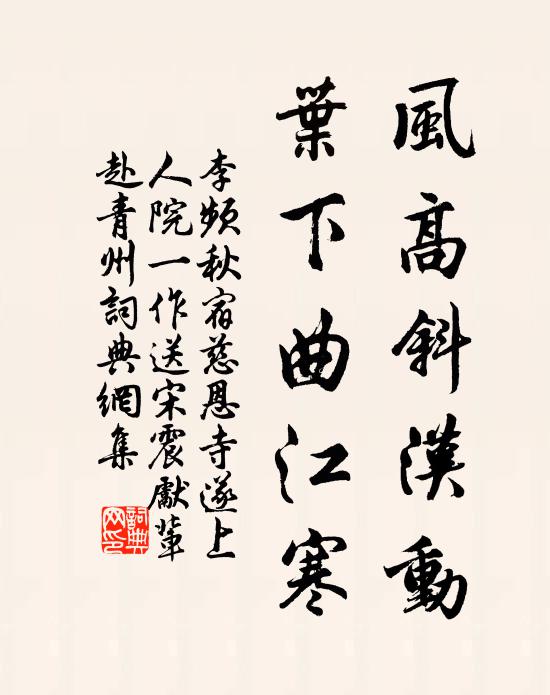 風高斜漢動
葉下曲江寒
李頻秋宿慈恩寺遂上
人院一作送宋震獻輩
赴青州詞典網集
詞典網印